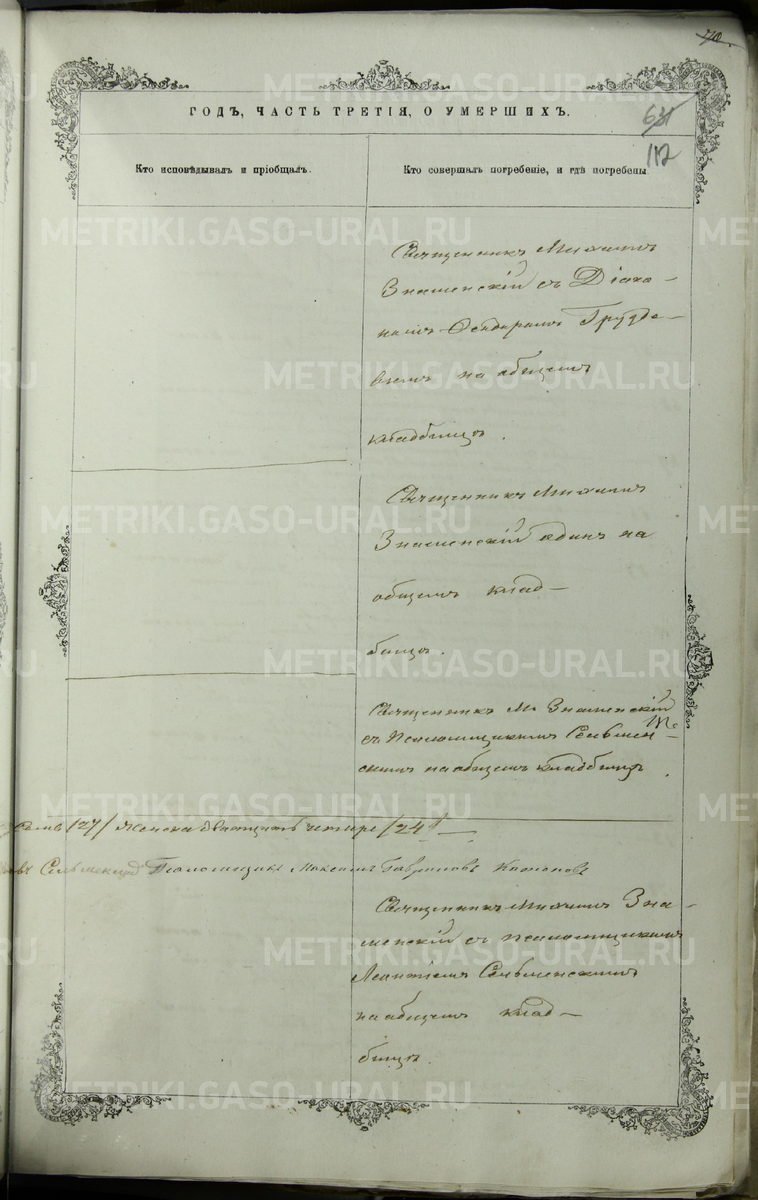 70.
ГОДЪ, ЧАСТЬ ТРЕТІЯ, О УМЕРШИХЪ.
631
112
Кто исповѣдывалъ и пріобщалъ.
Кто совершалъ погребеніе, и гдѣ погребены.
METRIKI.GASO-URAL.RU
Священникъ Михаилъ
Знаменскій съ Діако-
номъ Ѳеодоромъ Груздe-
вымъ на общемъ
кладбищѣ.
Священникъ Михаилъ
Знаменскій одинъ на
общемъ клад-
бищѣ.
Священникъ М. Знаменскій
съ Псаломщикомъ Сельмен-
скимъ на общемъ кладбищѣ.
/27/ женска двадцать четыре /24/
Сельменскій Псаломщикъ Максимъ Гавриловъ
Священникъ Михаилъ Зна-
менскій съ псаломщикомъ
Леонтіемъ Сельменскимъ
на общемъ клад-
бищѣ.